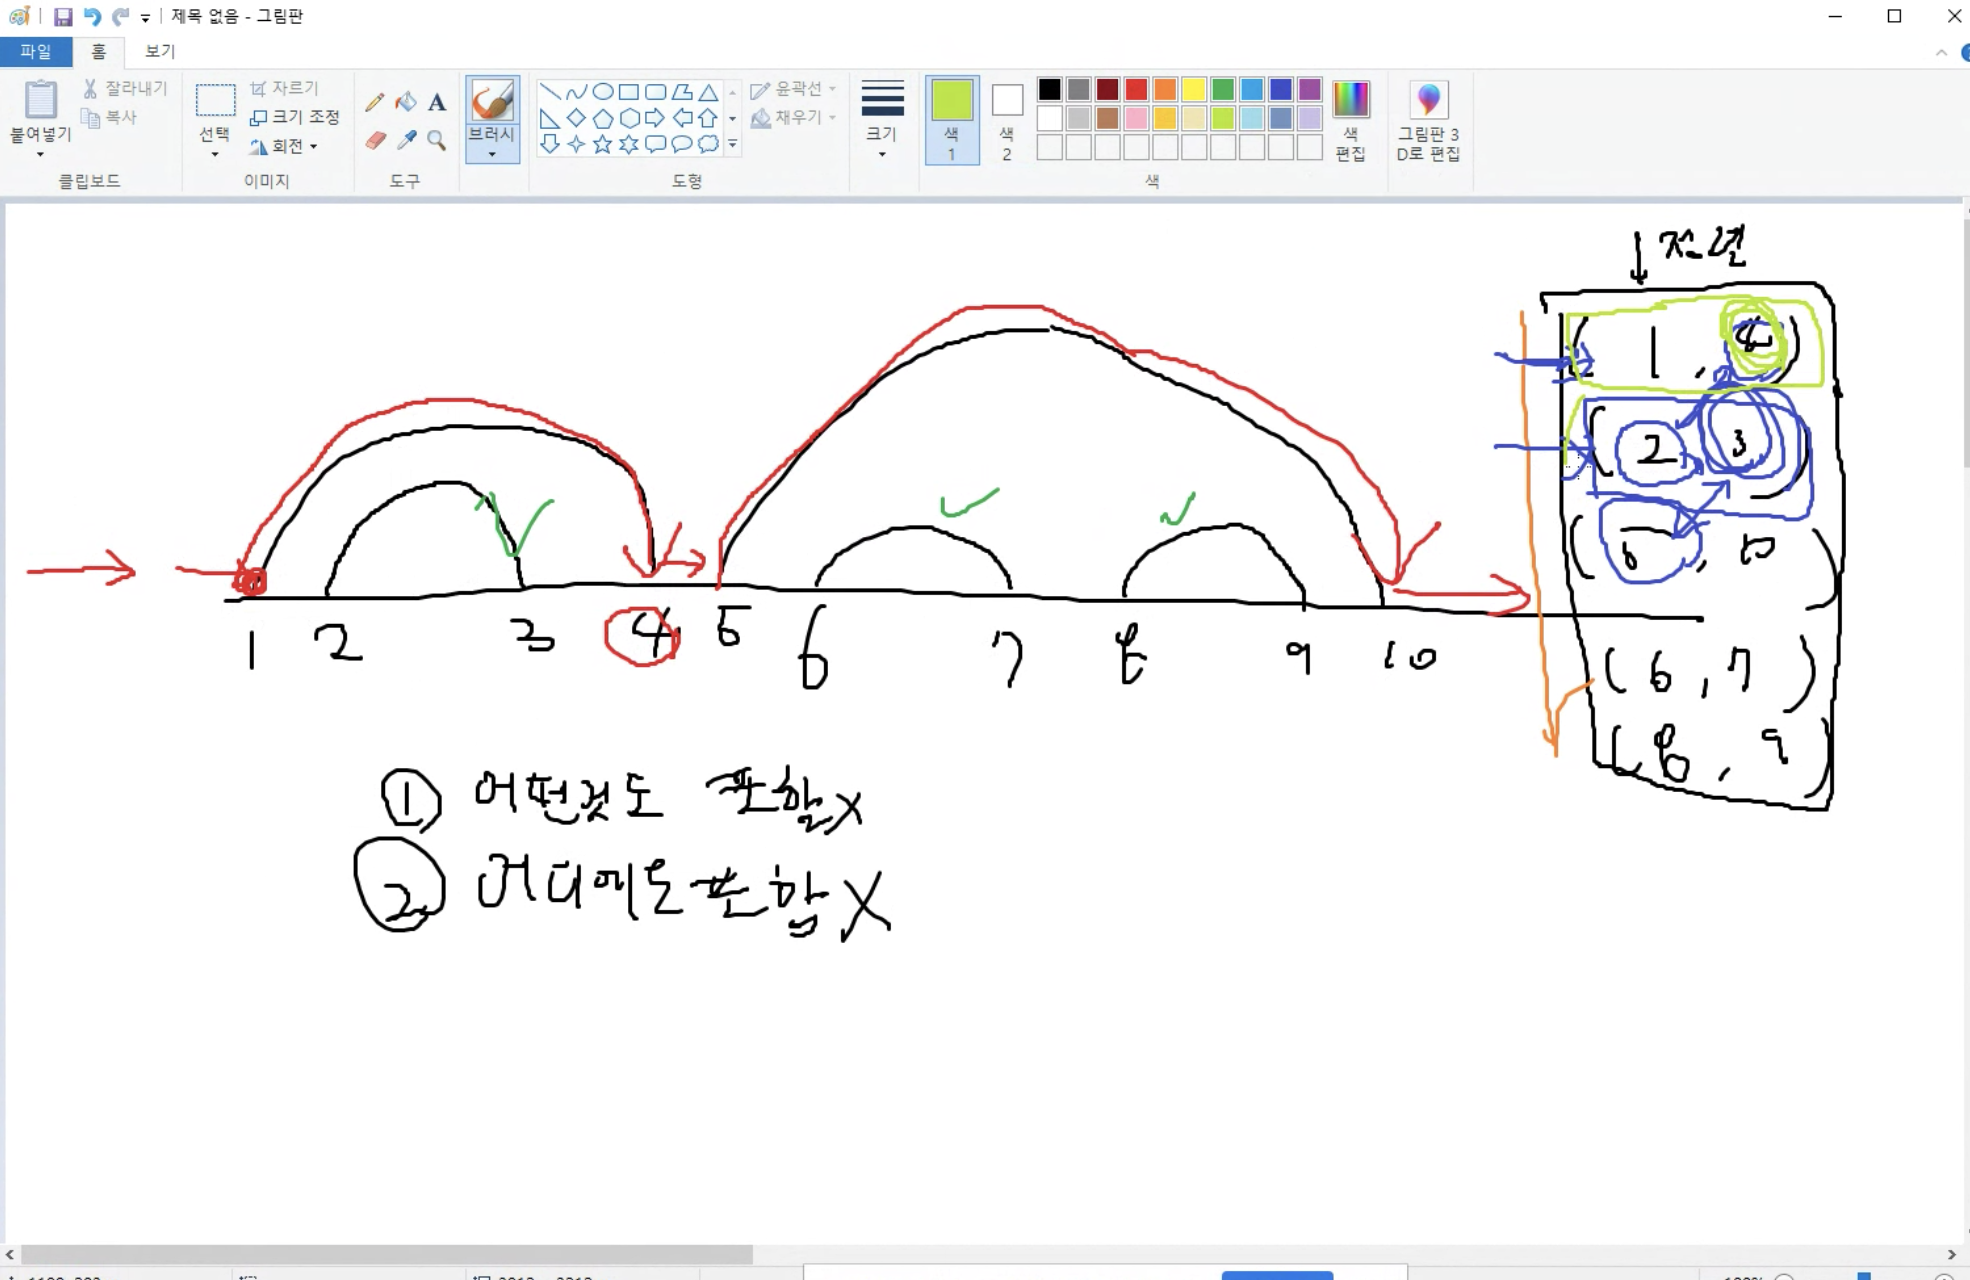 제목 없음 - 그림판
파일 홈 보기
붙여넣기
잘라내기
복사
클립보드
선택
자르기
크기 조정
회전
이미지
A
도구
브러시
도형
윤곽선
채우기
크기
색
1
색
2
색
편집
그림판 3
D로 편집
색
↓ 전선
( 1 , 4 )
( 2 3 )
( , 10 )
( 6 , 7 )
( 8 , 9 )
1 2 3 4 5 6 7 8 9 10
① 어떤것도 포함 X
② 어디에도 포함 X